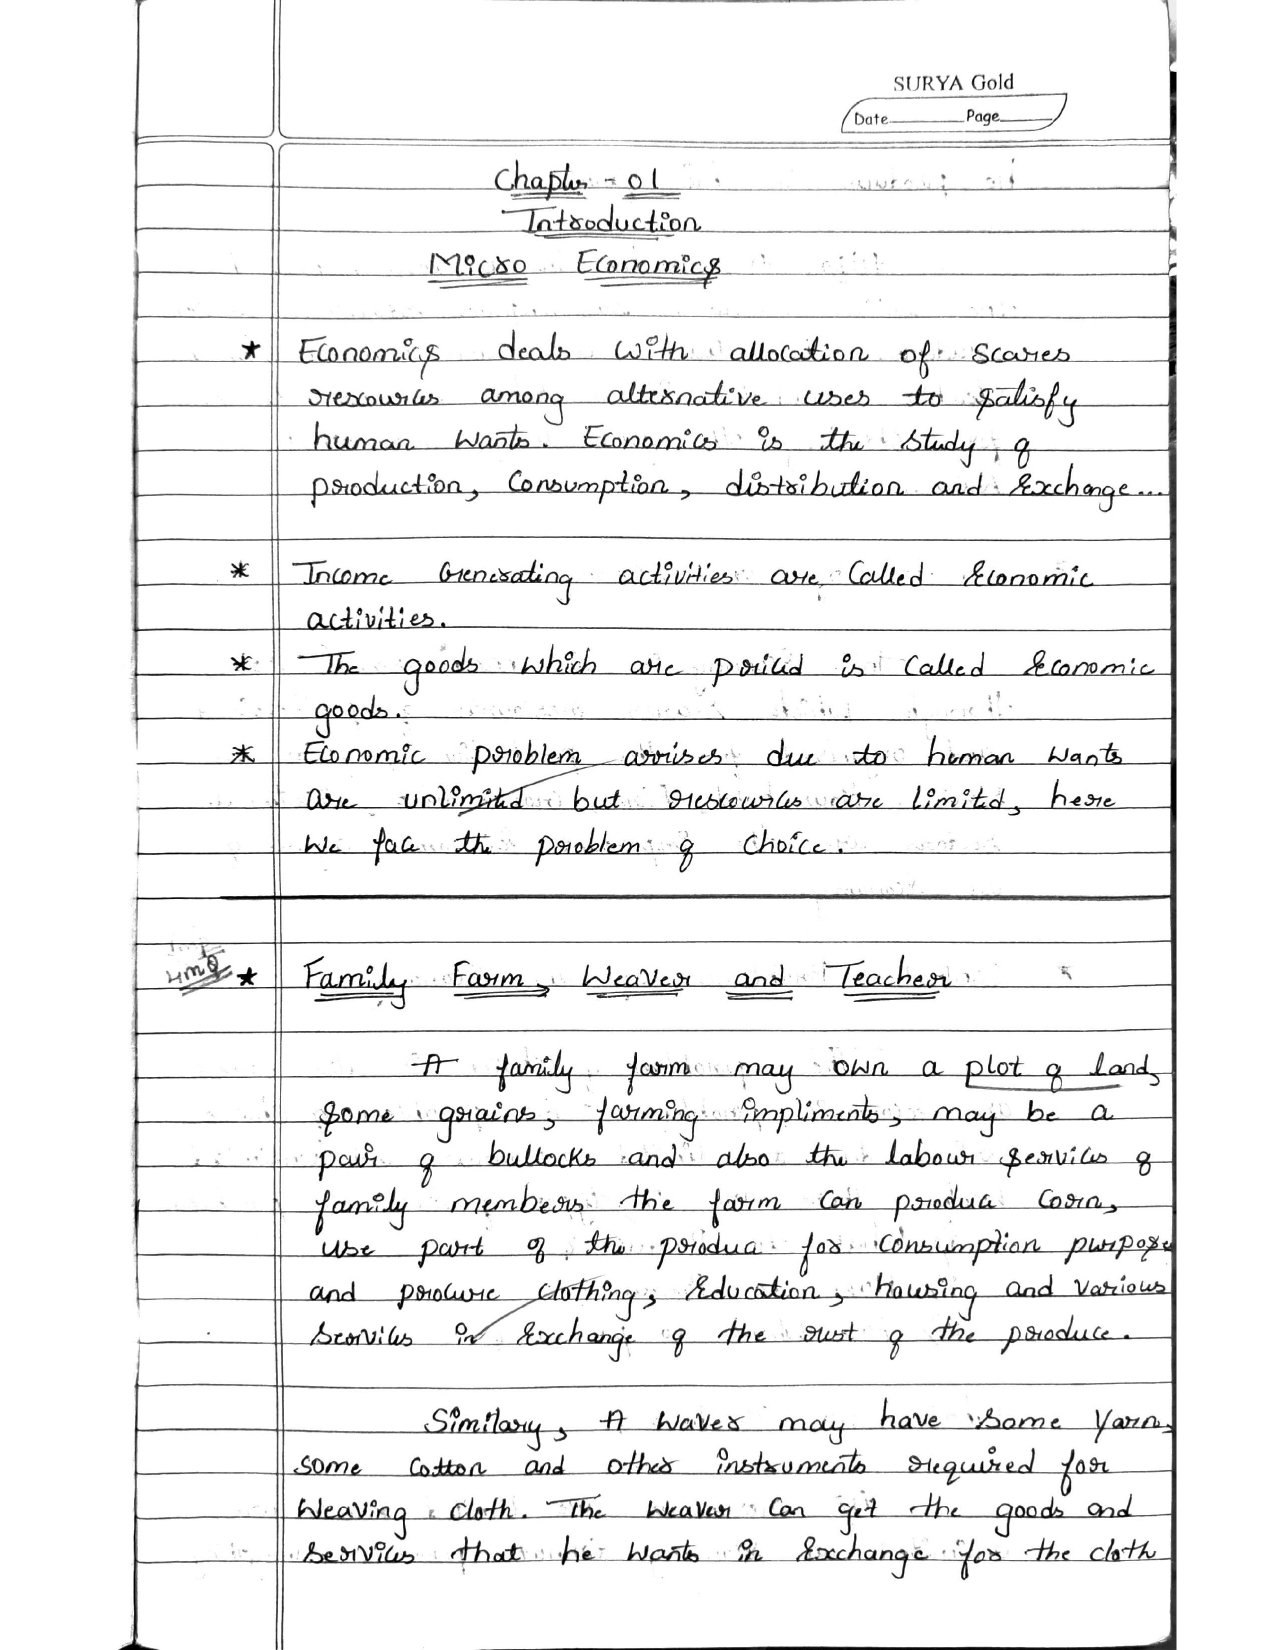 SURYA Gold
Date Page
Chapter - 01
Introduction
Micro Economics
* Economics deals with allocation of scares
resources among alternative uses to satisfy
human wants. Economics is the study of
production, Consumption, distribution and Exchange...
* Income Generating activities are Called Economic
activities.
* The goods which are priced is Called Economic
goods.
* Economic problem arrises due to human wants
are unlimited but resources are limited, here
we face the problem of choice.
4mQ * Family Farm, Weaver and Teacher
A family farm may own a plot of land,
some grains, farming impliments, may be a
pair of bullocks and also the labour services of
family members the farm can produce corn,
use part of the produce for consumption purpose
and procure clothing, Education, housing and various
services in exchange of the rust of the produce.
Similary, A waver may have some yarn,
some cotton and other instruments required for
weaving cloth. The weaver can get the goods and
services that he wants in Exchange for the cloth